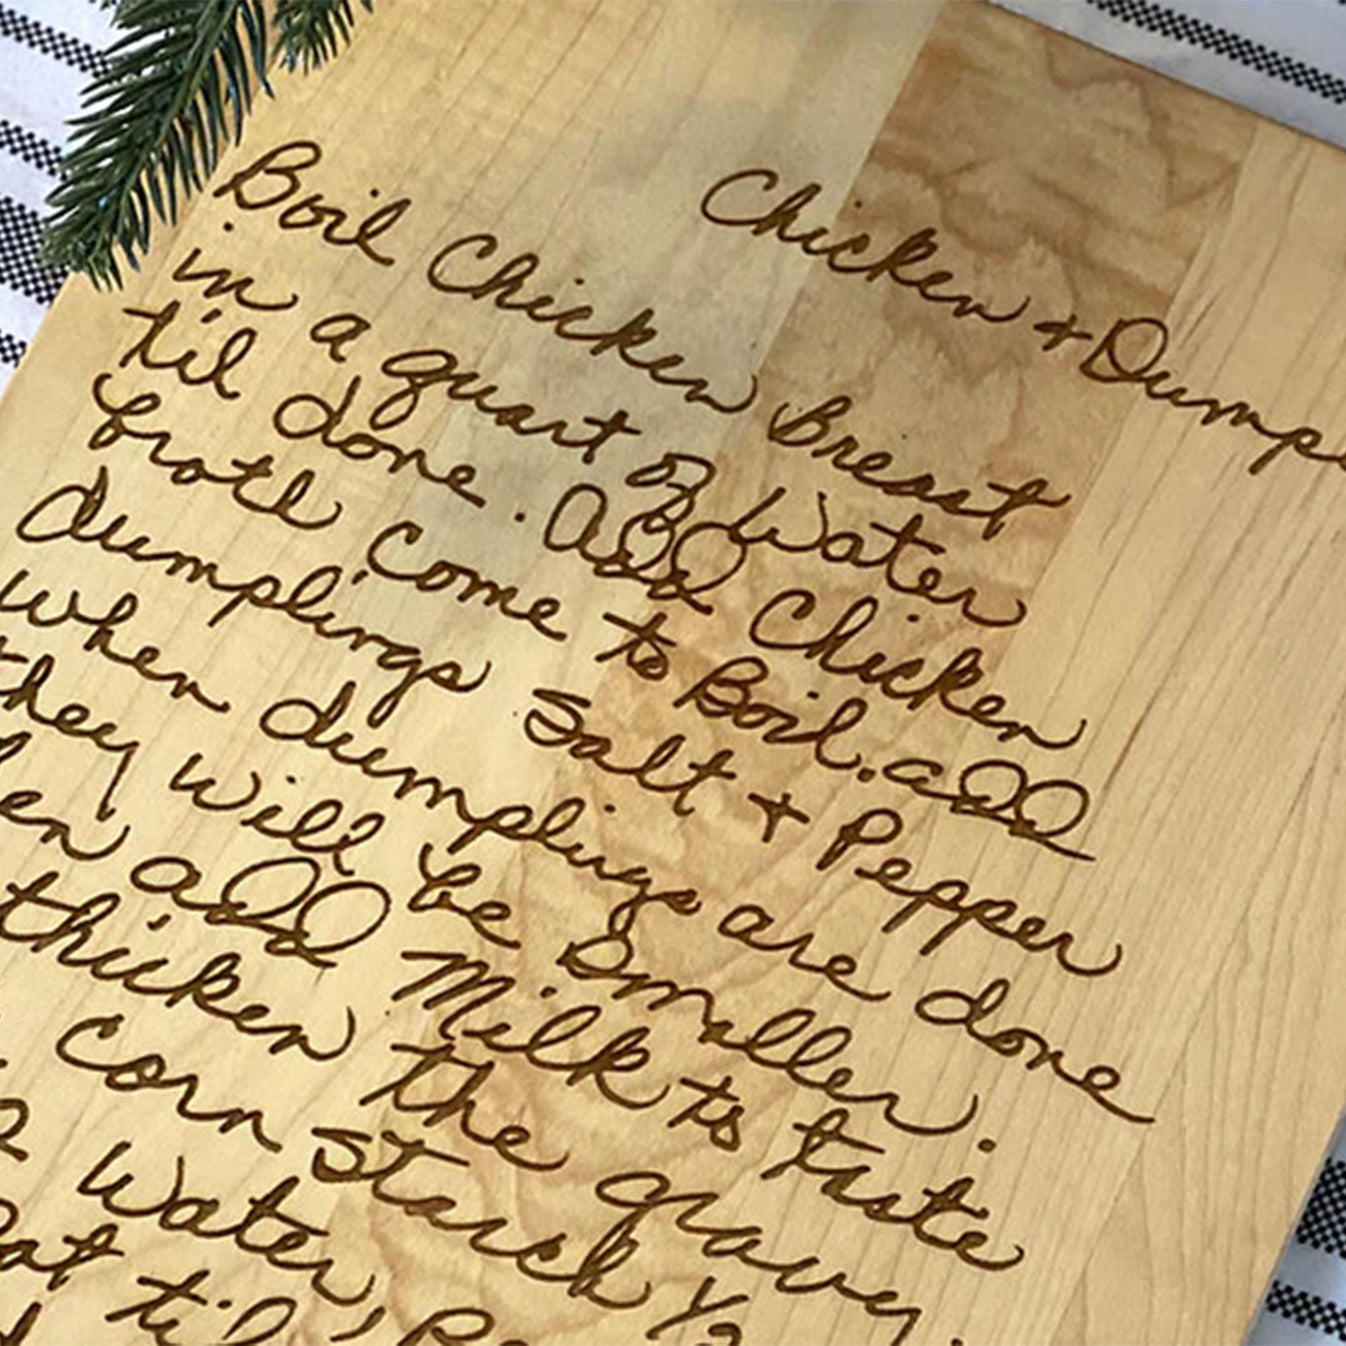 Chicken & Dump
Boil Chicken Breast
in a quart of Water
til done. Add Chicken
broth come to Boil. add
dumplings Salt & Pepper
when dumplings are done
they will be Smaller.
en add Milk to taste
thicken the gravy.
corn starch
Water,
at til